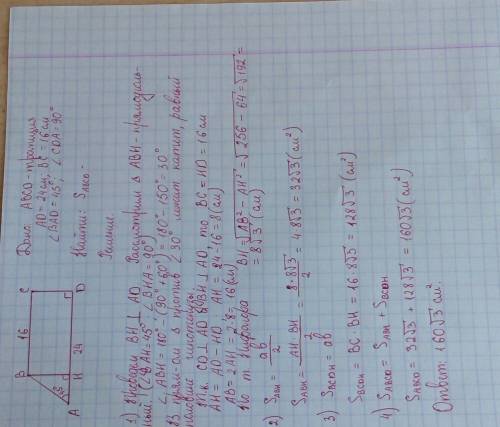 Дано: ABCD - трапеция
AD = 24 см, BC = 16 см
∠BAD = 45°; ∠CDA = 90°
Найти: S_ABCD -
Решение
B
C
16
A
45
H
24
D
1) Проведём BH ⊥ AD. Рассмотрим △ ABH - прямоуголь-
ный. (∠BAH = 45°, ∠BHA = 90°)
∠ABH = 180° - (90° + 60°) = 180° - 150° = 30°
В прям-ом △ против ∠30° лежит катет, равный
половине гипотенузы.
Т.к. CD ⊥ AD и BH ⊥ AD, то BC = HD = 16 см
AH = AD - HD  AH = 24 - 16 = 8 (см)
AB = 2AH = 2 · 8 = 16 (см)
По т. Пифагора BH = √AB² - AH² = √256 - 64 = √192 =
= 8√3 (см)
2) S_ABH = ab/2
S_ABH = AH · BH/2 = 8 · 8√3/2 = 4 · 8√3 = 32√3 (см²)
3) S_BCDH = ab
S_BCDH = BC · BH = 16 · 8√3 = 128√3 (см²)
4) S_ABCD = S_ABH + S_BCDH
S_ABCD = 32√3 + 128√3 = 160√3 (см²)
Ответ: 160√3 см².